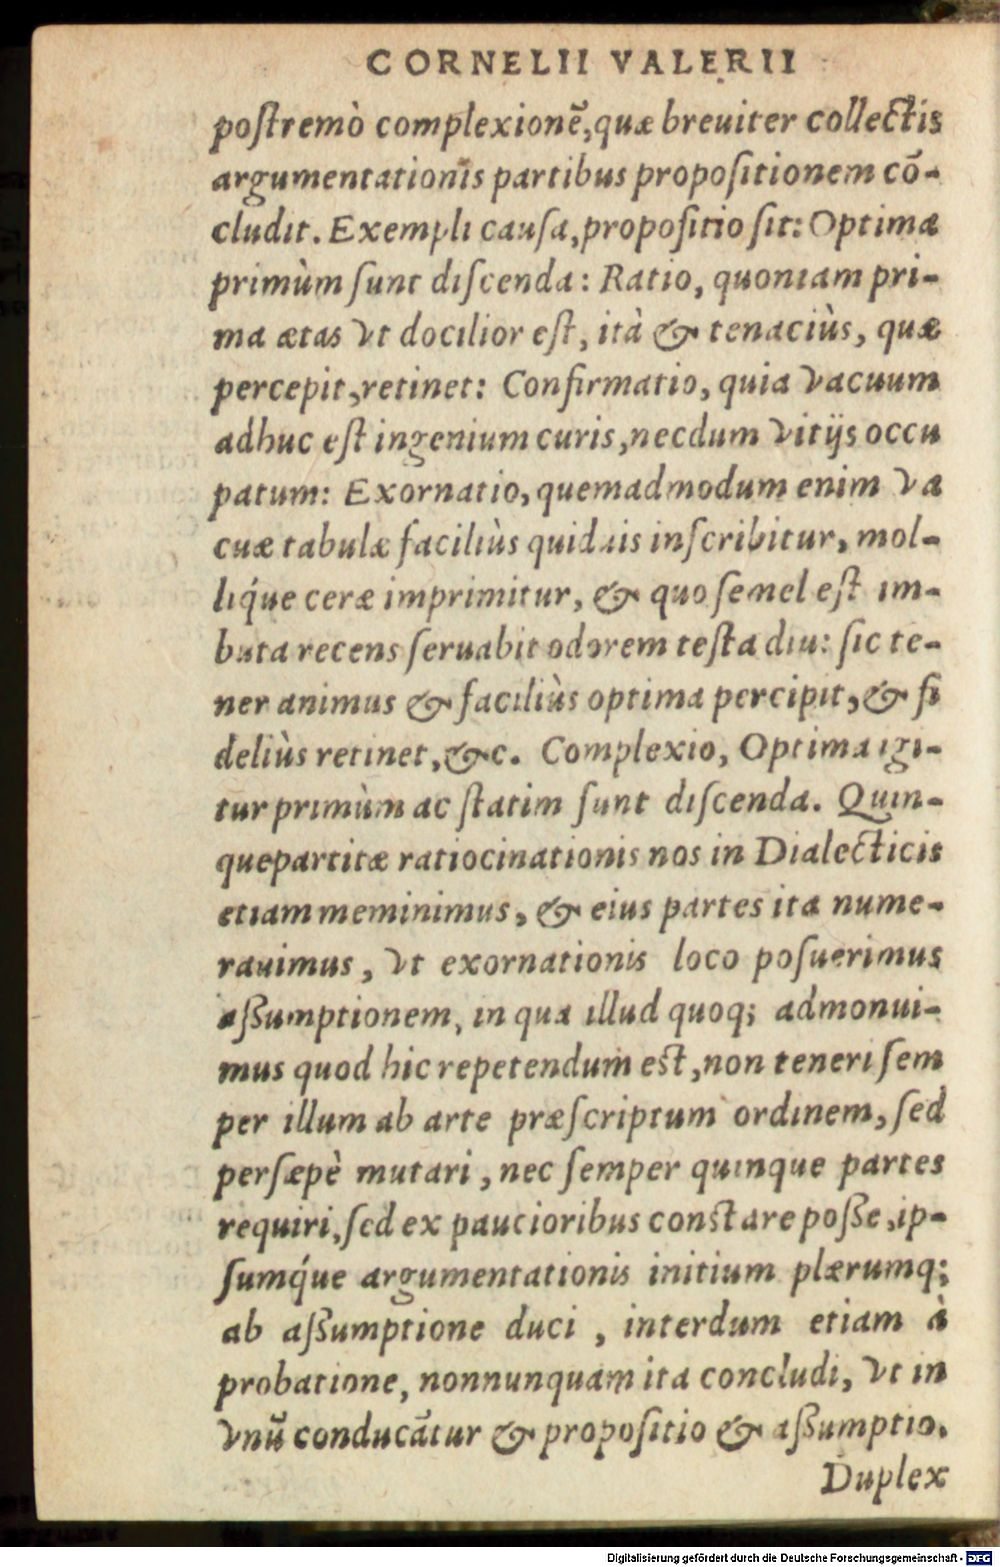 CORNELII VALERII
postremò complexionẽ, quæ breuiter collectis
argumentationis partibus propositionem cõ-
cludit. Exempli causa, propositio sit: Optima
primùm sunt discenda: Ratio, quoniam pri-
ma ætas vt docilior est, ità & tenaciùs, quæ
percepit, retinet: Confirmatio, quia vacuum
adhuc est ingenium curis, necdum vitijs occu
patum: Exornatio, quemadmodum enim va
cuæ tabulæ faciliùs quiduis inscribitur, mol-
liq́ue ceræ imprimitur, & quo semel est im-
buta recens seruabit odorem testa diu: sic te-
ner animus & faciliùs optima percipit, & fi
deliùs retinet, &c. Complexio, Optima igi-
tur primùm ac statim sunt discenda. Quin-
quepartitæ ratiocinationis nos in Dialecticis
etiam meminimus, & eius partes ita nume-
rauimus, vt exornationis loco posuerimus
aßumptionem, in qua illud quoq; admonui-
mus quod hic repetendum est, non teneri sem
per illum ab arte præscriptum ordinem, sed
persæpè mutari, nec semper quinque partes
requiri, sed ex paucioribus constare poße, ip-
sumq́ue argumentationis initium plærumq;
ab aßumptione duci, interdum etiam à
probatione, nonnunquam ita concludi, vt in
vnũ conducãtur & propositio & aßumptio.
Duplex
Digitalisierung gefördert durch die Deutsche Forschungsgemeinschaft - DFG